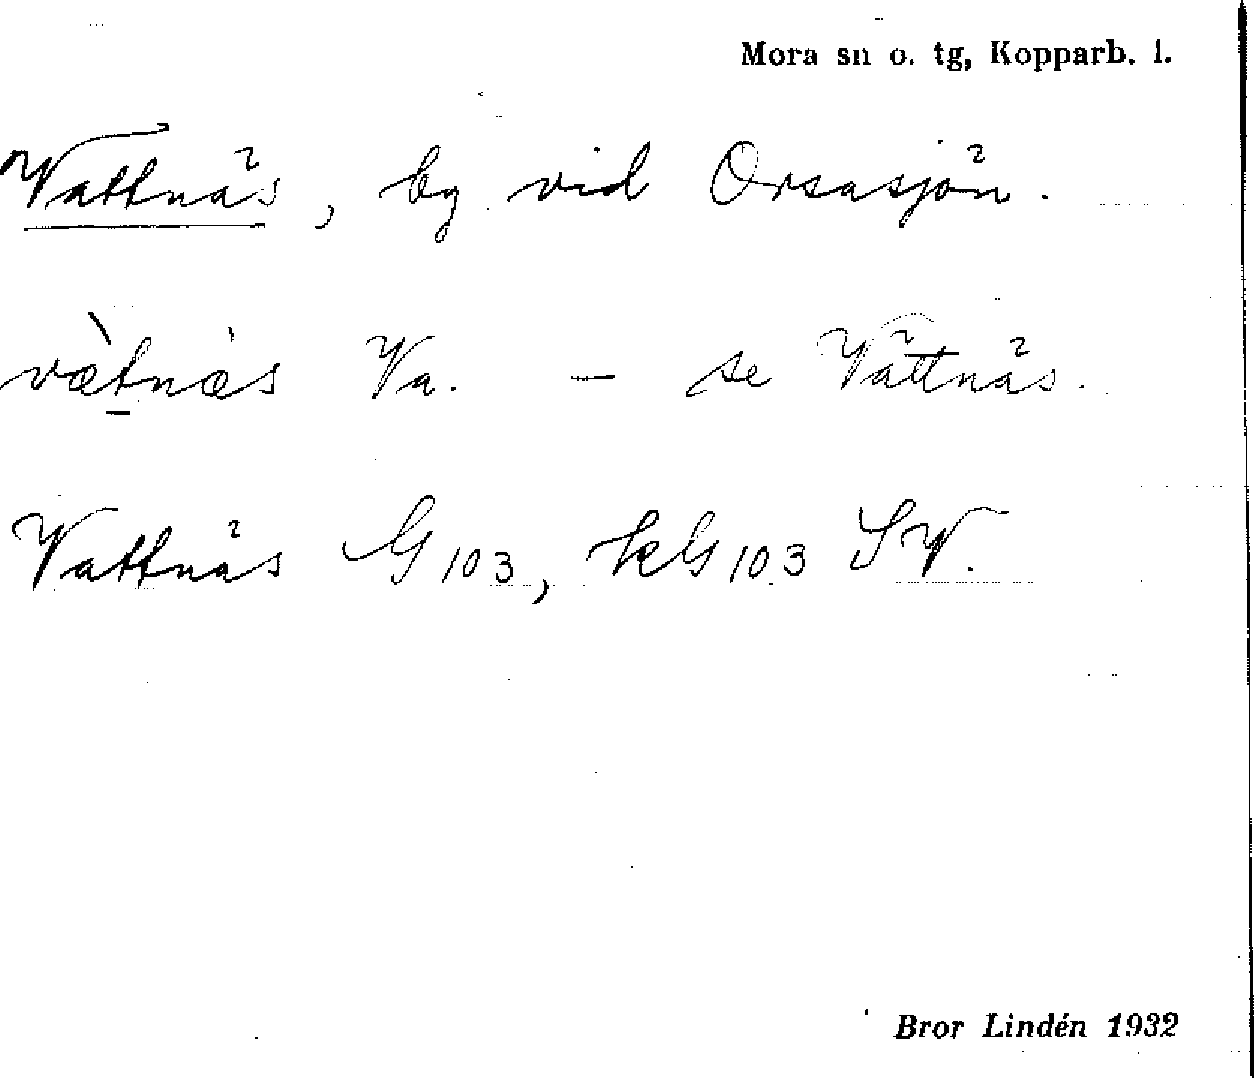 Mora sn o. tg, Kopparb. l.
Vattnäs, by vid Orsasjön.
vætnæs Va. – se Vättnäs.
Vattnäs G 103, kG 103 SV.
Bror Lindén 1932